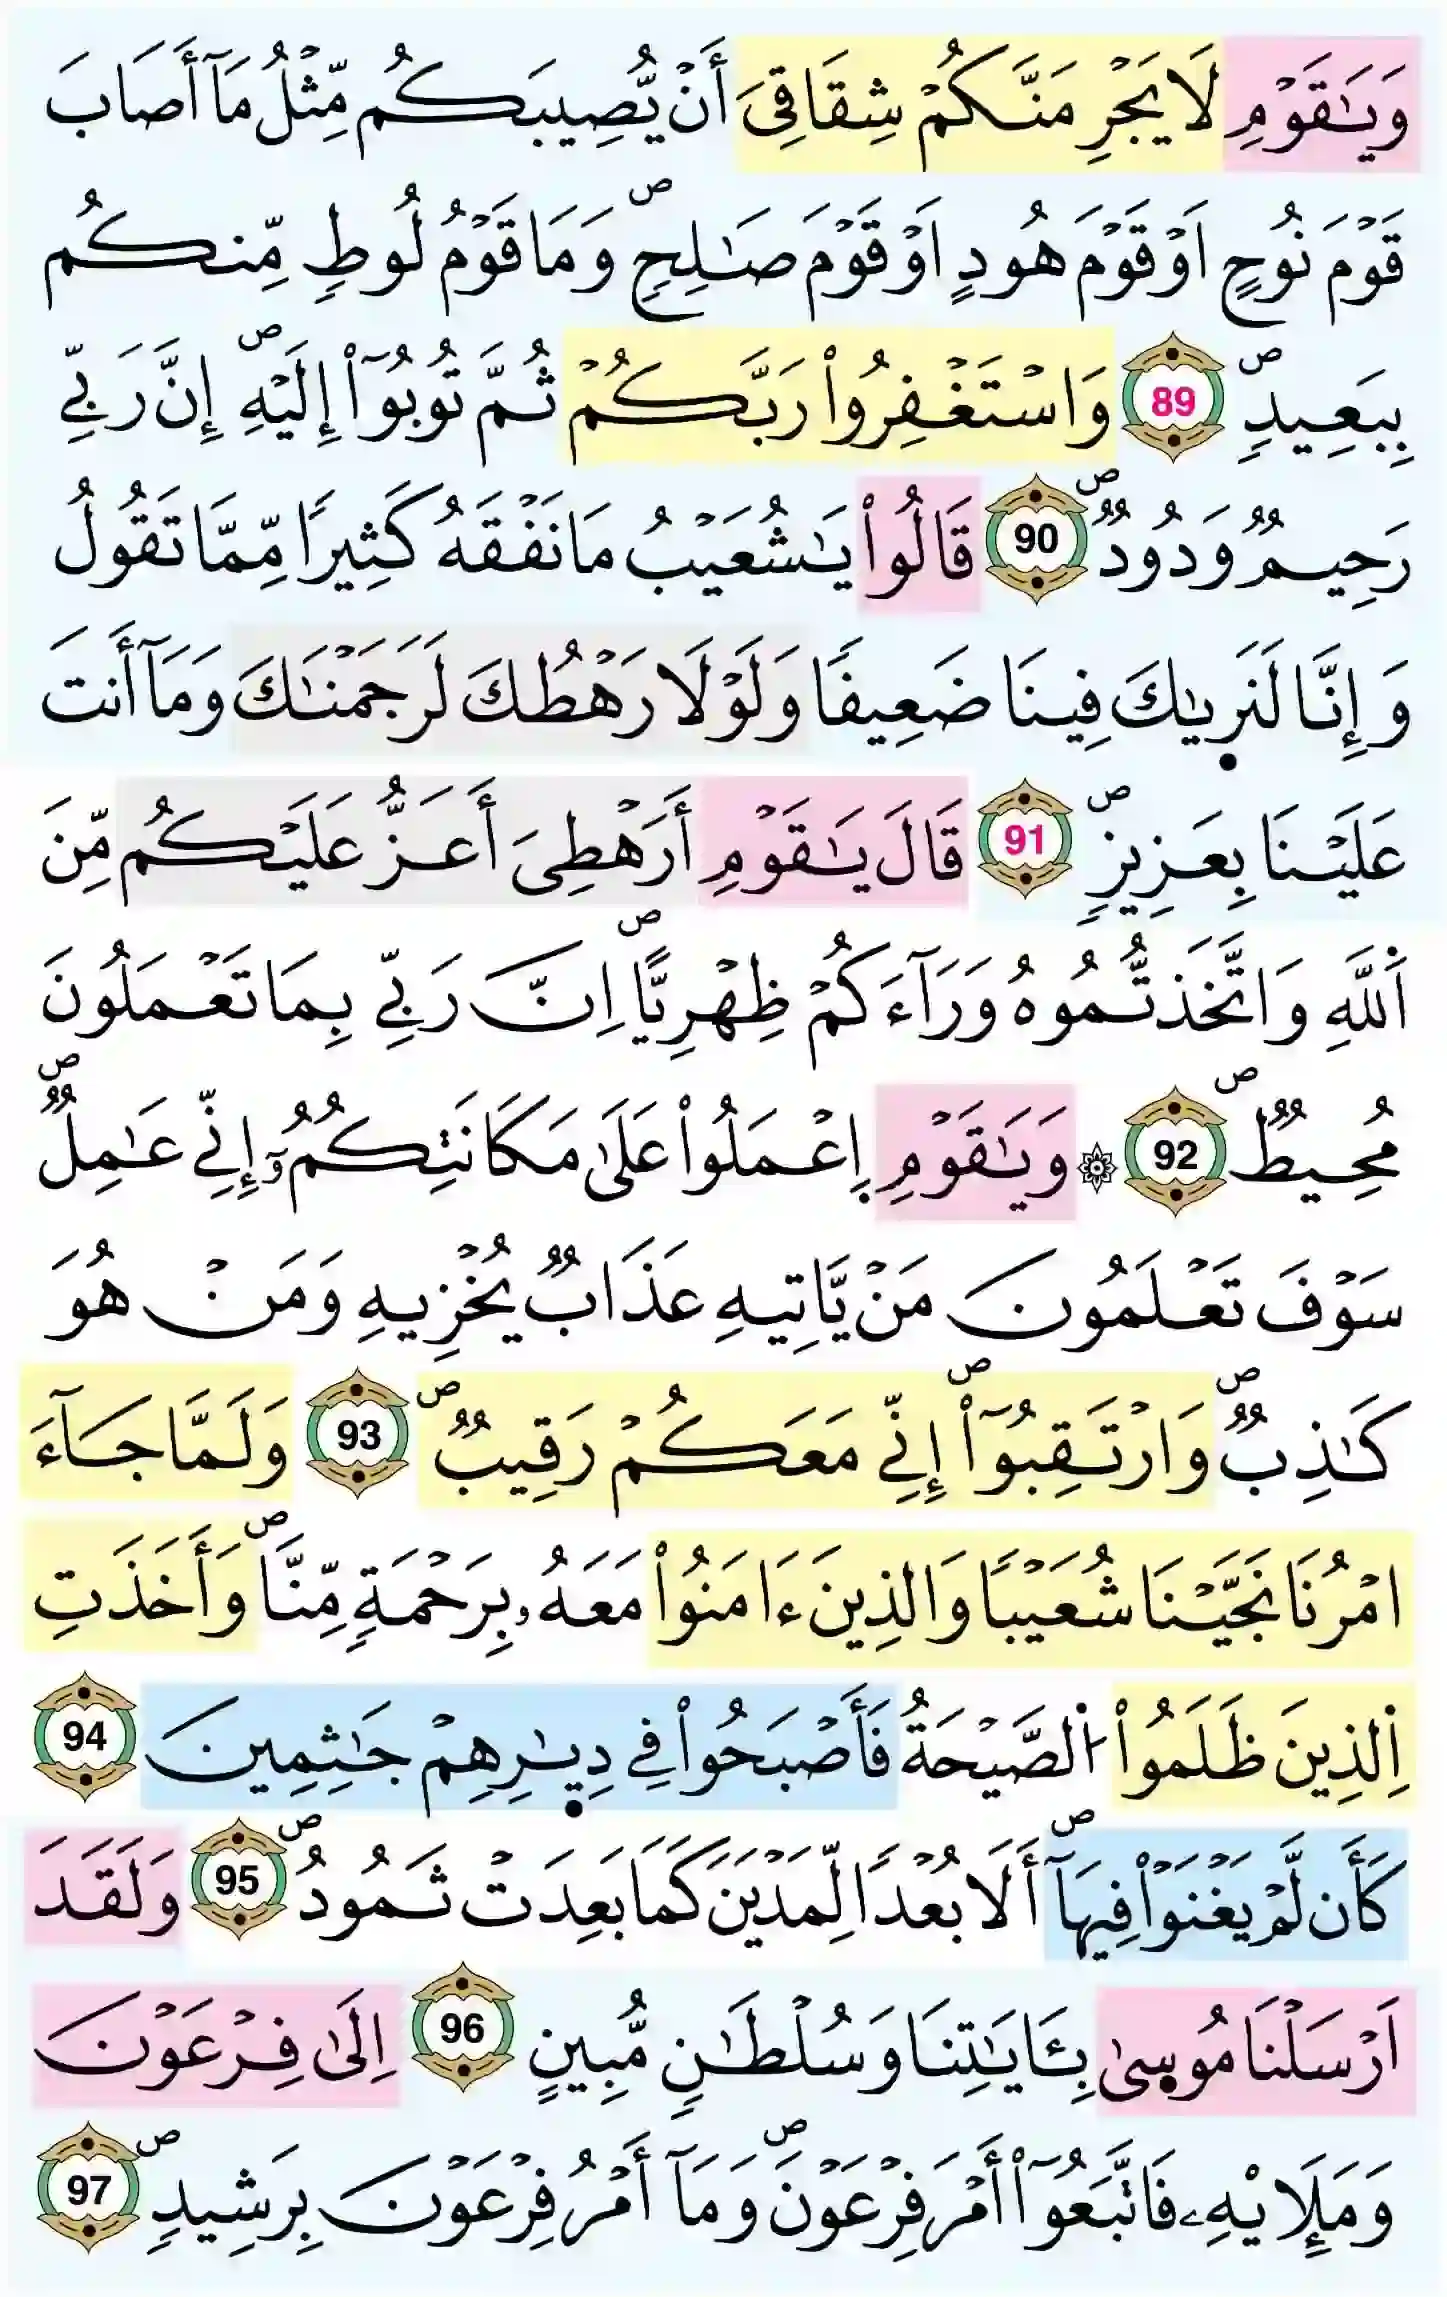 وَيَٰقَوْمِ لَا يَجْرِمَنَّكُمْ شِقَاقِيَ أَنْ يُّصِيبَكُم مِّثْلُ مَآ أَصَابَ
قَوْمَ نُوحٍ اَوْ قَوْمَ هُودٍ اَوْ قَوْمَ صَٰلِحٍۖ وَمَا قَوْمُ لُوطٍ مِّنكُم
بِبَعِيدٍۖ 89 وَاسْتَغْفِرُواْ رَبَّكُمْ ثُمَّ تُوبُوٓاْ إِلَيْهِۖ إِنَّ رَبِّي
رَحِيمٌ وَدُودٌۖ 90 قَالُواْ يَٰشُعَيْبُ مَا نَفْقَهُ كَثِيرًا مِّمَّا تَقُولُ
وَإِنَّا لَنَرٜيٰكَ فِينَا ضَعِيفًا وَلَوْلَا رَهْطُكَ لَرَجَمْنَٰكَ وَمَآ أَنتَ
عَلَيْنَا بِعَزِيزٍۖ 91 قَالَ يَٰقَوْمِ أَرَهْطِيَ أَعَزُّ عَلَيْكُم مِّنَ
اَ۬للَّهِ وَاتَّخَذتُّمُوهُ وَرَآءَكُمْ ظِهْرِيًّاۖ اِنَّ رَبِّي بِمَا تَعْمَلُونَ
مُحِيطٌۖ 92 ۞ وَيَٰقَوْمِ اِ۪عْمَلُواْ عَلَىٰ مَكَانَتِكُمُۥٓ إِنِّي عَٰمِلٌۖ
سَوْفَ تَعْلَمُونَ مَنْ يَّاتِيهِ عَذَابٌ يُخْزِيهِ وَمَنْ هُوَ
كَٰذِبٌۖ وَارْتَقِبُوٓاْۖ إِنِّي مَعَكُمْ رَقِيبٌۖ 93 وَلَمَّا جَآءَ
امْرُنَا نَجَّيْنَا شُعَيْبًا وَالذِينَ ءَامَنُواْ مَعَهُۥ بِرَحْمَةٍ مِّنَّاۖ وَأَخَذَتِ
اِ۬لذِينَ ظَلَمُواْ اُ۬لصَّيْحَةُ فَأَصْبَحُواْ فِي دِيٰٜرِهِمْ جَٰثِمِينَ 94
كَأَن لَّمْ يَغْنَوْاْ فِيهَآۖ أَلَا بُعْدًا لِّمَدْيَنَ كَمَا بَعِدَتْ ثَمُودُۖ 95 وَلَقَدَ
اَرْسَلْنَا مُوسٜيٰ بِـَٔايَٰتِنَا وَسُلْطَٰنٍ مُّبِينٍ 96 اِلَىٰ فِرْعَوْنَ
وَمَلَإِيْهِۦ فَاتَّبَعُوٓاْ أَمْرَ فِرْعَوْنَۖ وَمَآ أَمْرُ فِرْعَوْنَ بِرَشِيدٍۖ 97